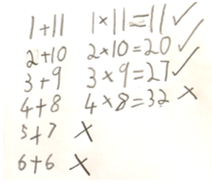 1+11 1×11=11 ✓
2+10 2×10=20 ✓
3+9 3×9=27 ✓
4+8 4×8=32 ×
5+7 ×
6+6 ×